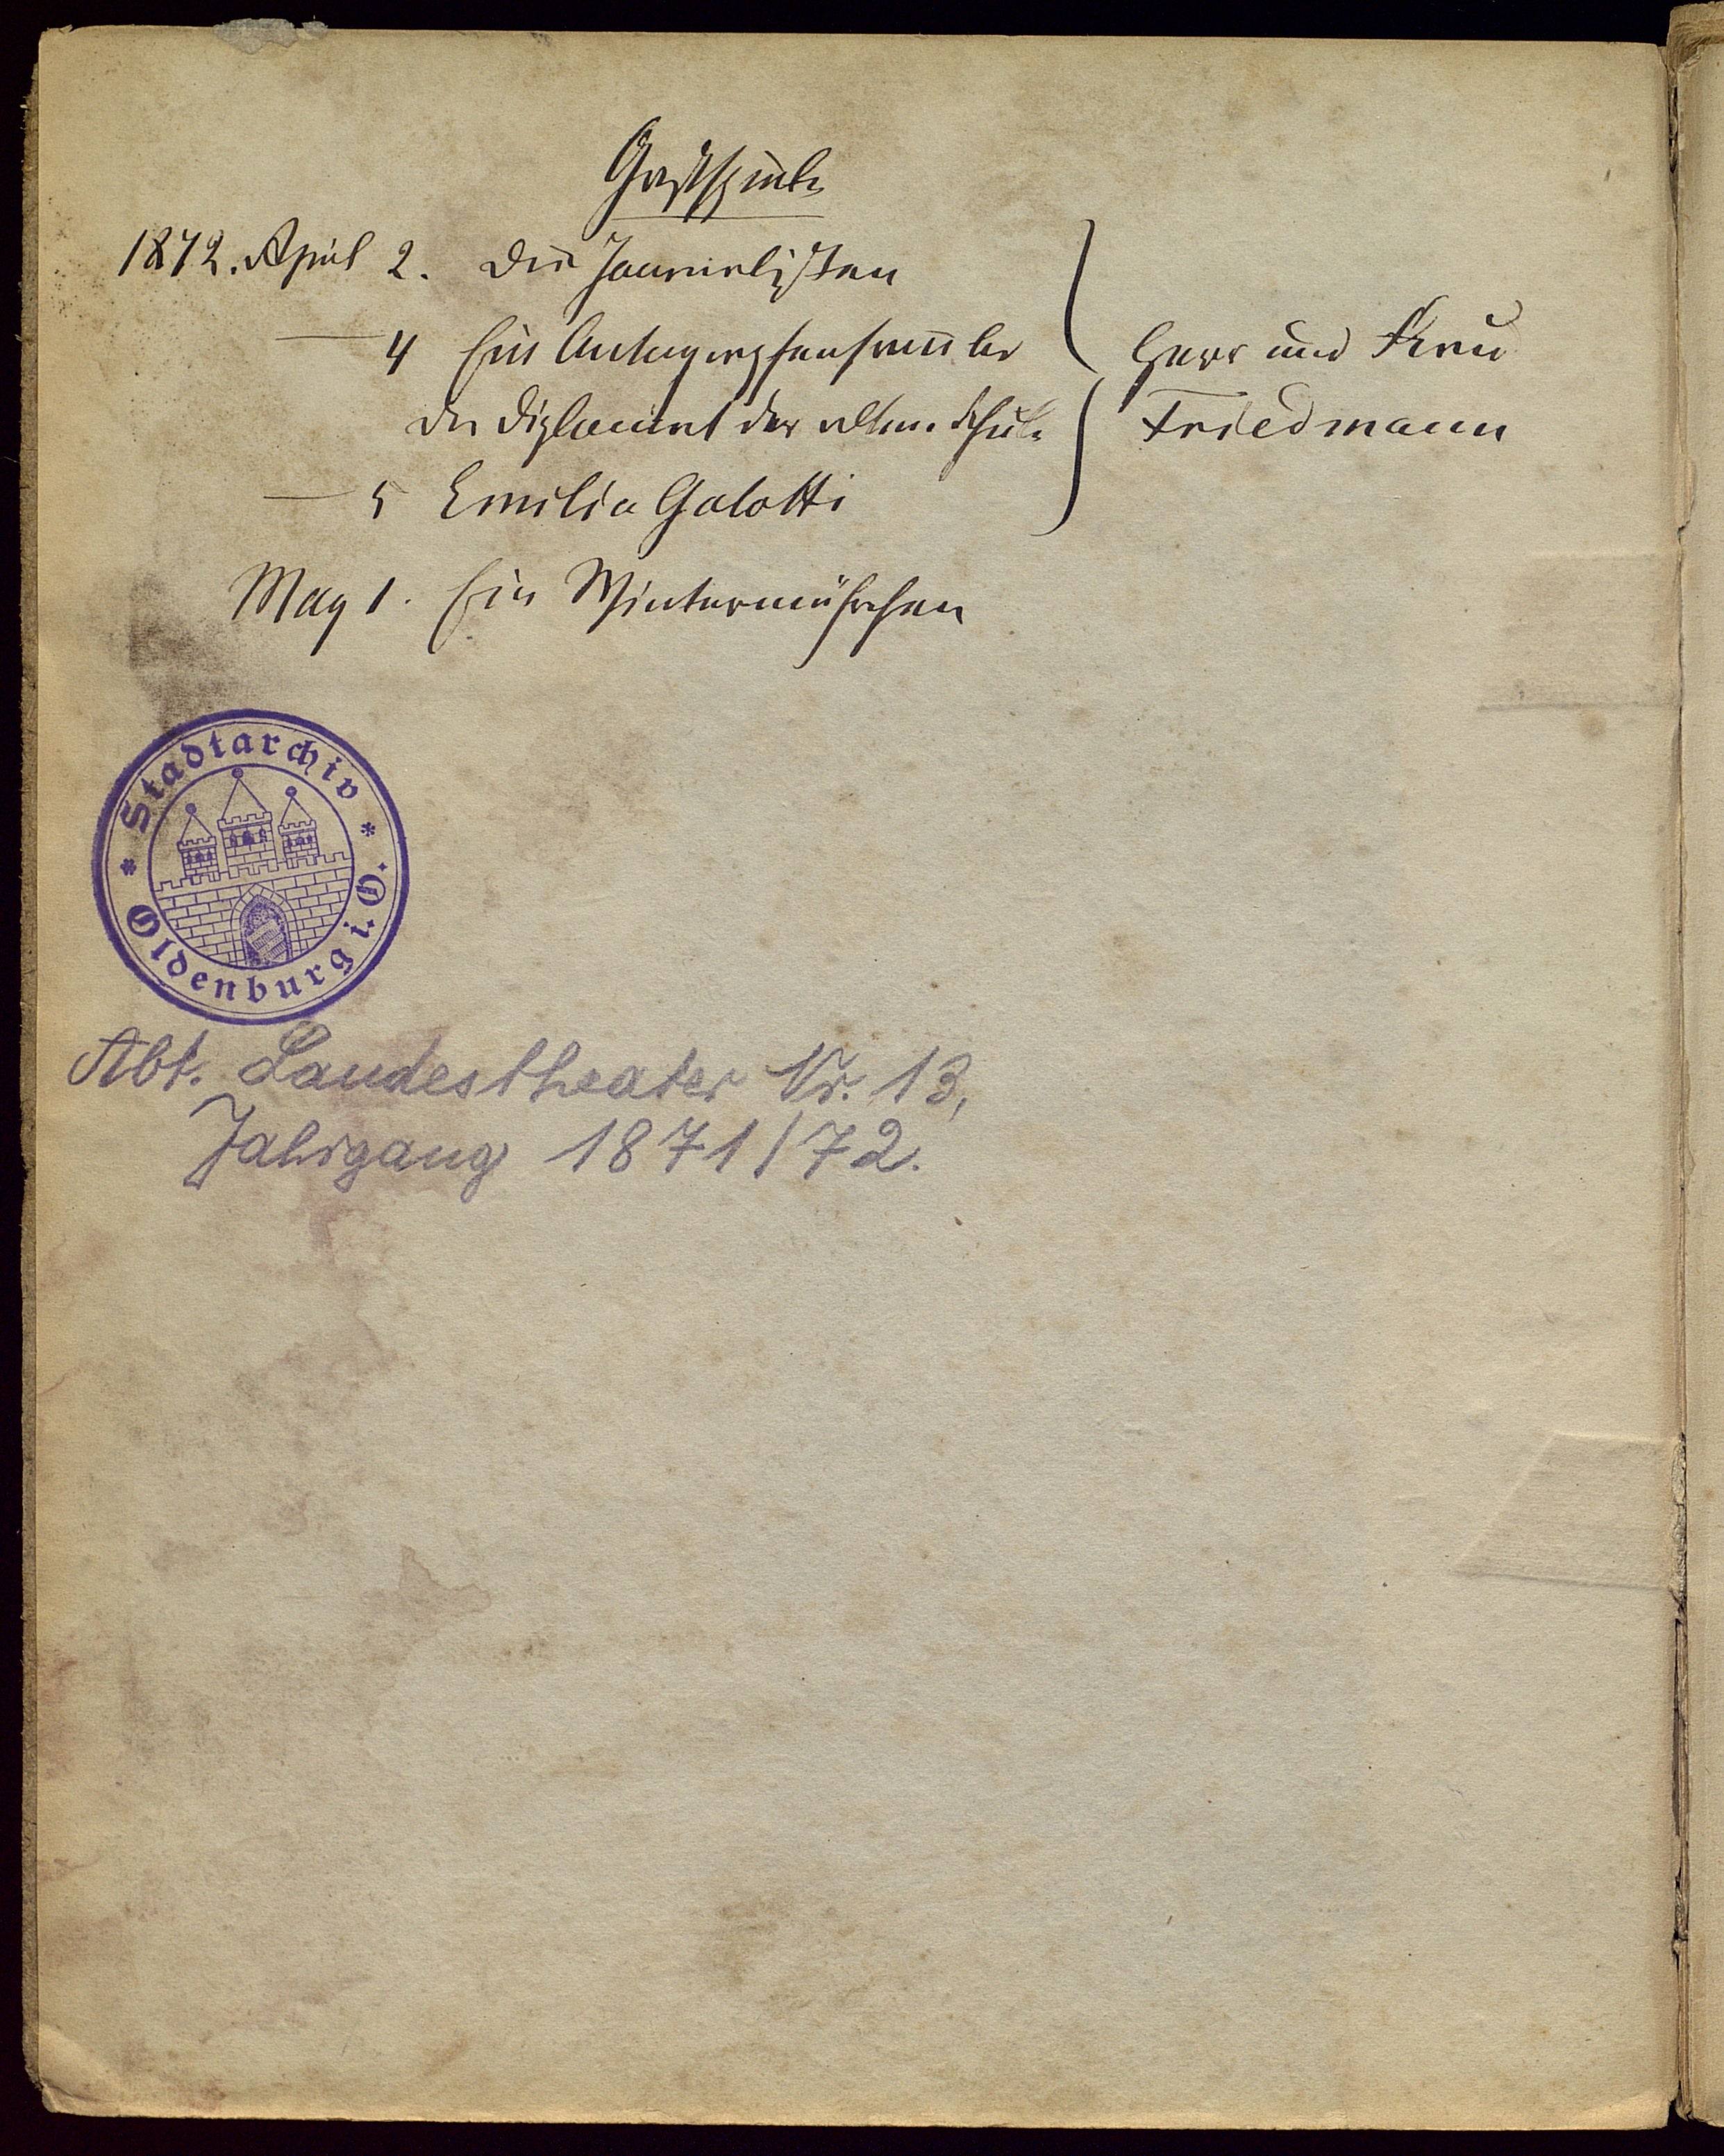 Gastspiele
1872. April 2. Die Journalisten
— 4 Ein Autographensammler
Der Diplomat der alten Schule
Herr und Frau
Friedmann
— 5 Emilia Galotti
May 1. Ein Wintermährchen
* Stadtarchiv *
Oldenburg i. O.
Abt. Landestheater Nr. 13,
Jahrgang 1871/72.